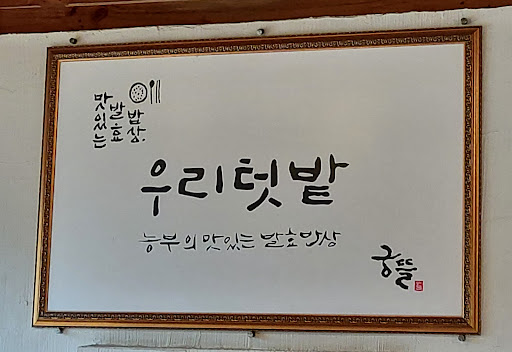 맛있는
발효
밥상.
우리텃밭
농부의 맛있는 발효밥상
궁뜰